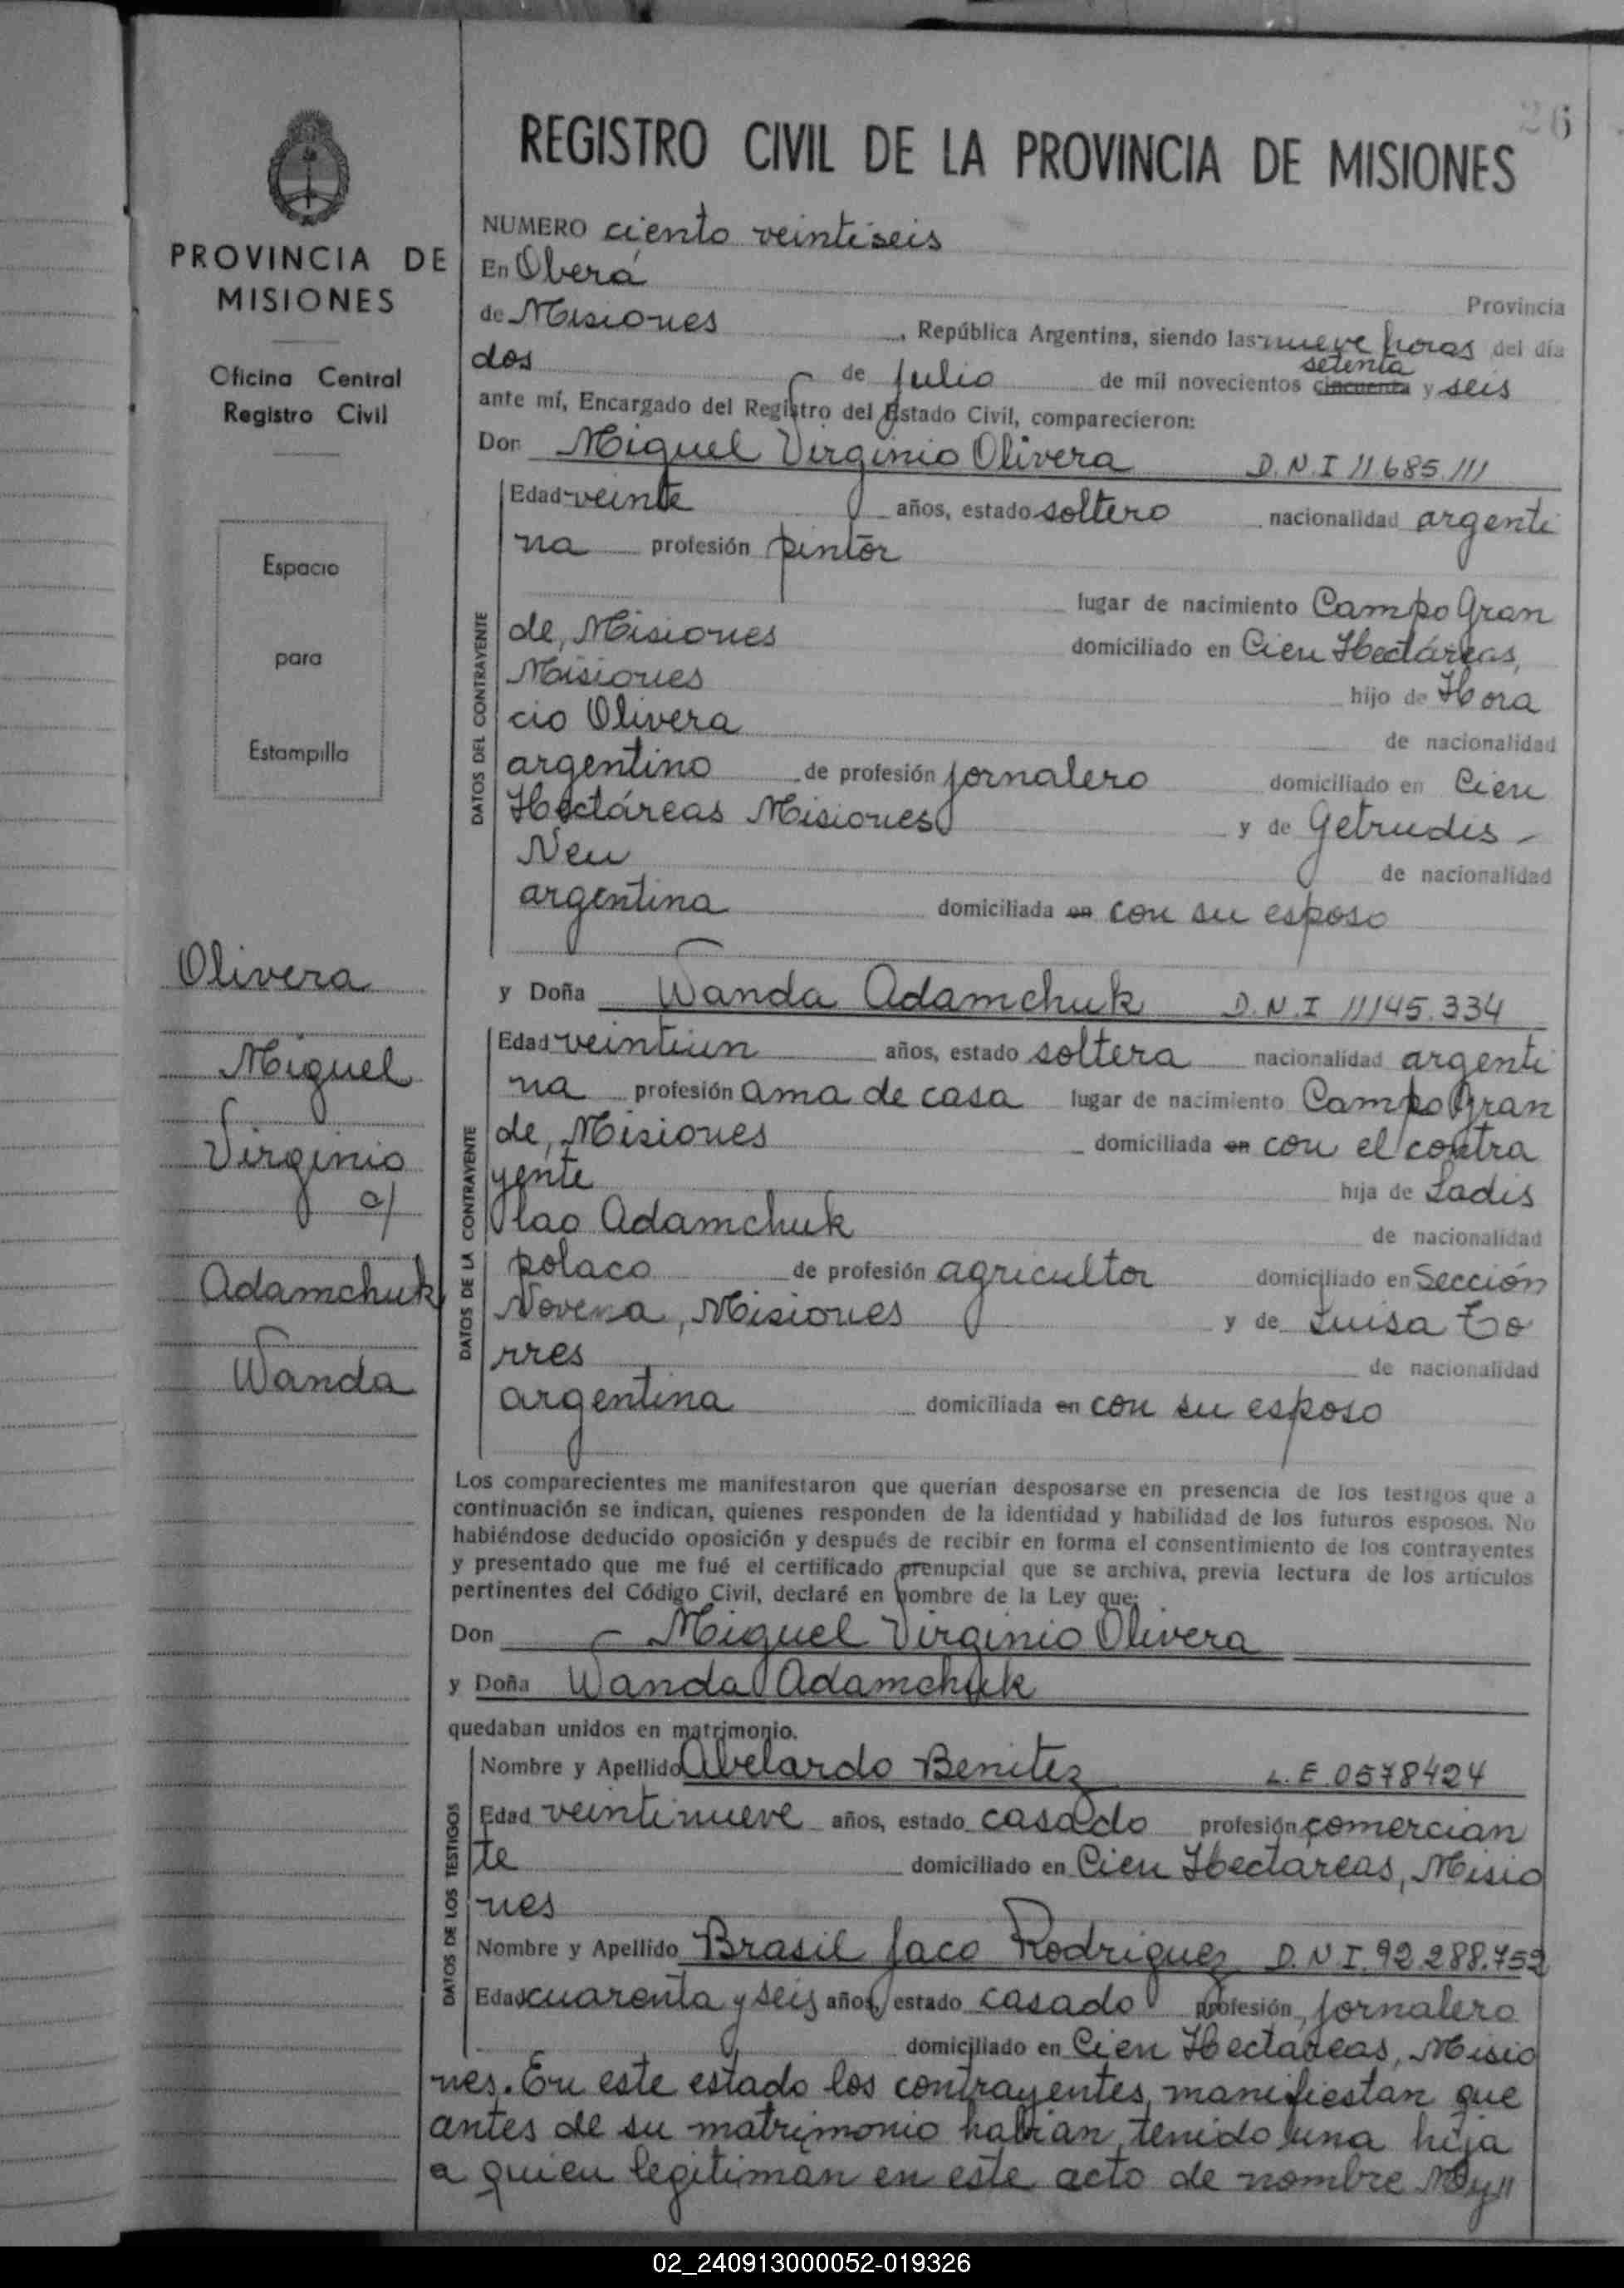 26
REGISTRO CIVIL DE LA PROVINCIA DE MISIONES
PROVINCIA DE
MISIONES
Oficina Central
Registro Civil
Espacio
para
Estampilla
Olivera
Miguel
Virginio
c/
Adamchuk
Wanda
NUMERO ciento veintiseis
En Oberá
Provincia
de Misiones, República Argentina, siendo las nueve horas del día
setenta
dos de Julio de mil novecientos cincuenta y seis
ante mí, Encargado del Registro del Estado Civil, comparecieron:
Don Miguel Virginio Olivera D.N.I 11.685.111
DATOS DEL CONTRAYENTE
Edad veinte años, estado soltero nacionalidad argenti
na profesión pintor
lugar de nacimiento Campo Gran
de, Misiones domiciliado en Cien Hectáreas,
Misiones hijo de Hora
cio Olivera de nacionalidad
argentino de profesión jornalero domiciliado en Cien
Hectáreas Misiones y de Getrudis -
Neu de nacionalidad
argentina domiciliada en con su esposo
y Doña Wanda Adamchuk D.N.I 11145.334
DATOS DE LA CONTRAYENTE
Edad veintiun años, estado soltera nacionalidad argenti
na profesión ama de casa lugar de nacimiento Campo Gran
de, Misiones domiciliada en con el contra
yente hija de Ladis
lao Adamchuk de nacionalidad
polaco de profesión agricultor domiciliado en Sección
Novena, Misiones y de Luisa To
rres de nacionalidad
argentina domiciliada en con su esposo
Los comparecientes me manifestaron que querían desposarse en presencia de los testigos que a
continuación se indican, quienes responden de la identidad y habilidad de los futuros esposos. No
habiéndose deducido oposición y después de recibir en forma el consentimiento de los contrayentes
y presentado que me fué el certificado prenupcial que se archiva, previa lectura de los artículos
pertinentes del Código Civil, declaré en nombre de la Ley que:
Don Miguel Virginio Olivera
y Doña Wanda Adamchuk
quedaban unidos en matrimonio.
DATOS DE LOS TESTIGOS
Nombre y Apellido Abelardo Benitez L.E.0578424
Edad veintinueve años, estado casado profesión comercian
te domiciliado en Cien Hectáreas, Misio
nes
Nombre y Apellido Brasil Jaco Rodriguez D.N.I. 92.288.752
Edad cuarenta y seis años, estado casado profesión jornalero
domiciliado en Cien Hectáreas, Misio
nes. En este estado los contrayentes, manifiestan que
antes de su matrimonio habian tenido una hija
a quien legitiman en este acto de nombre
02_240913000052-019326